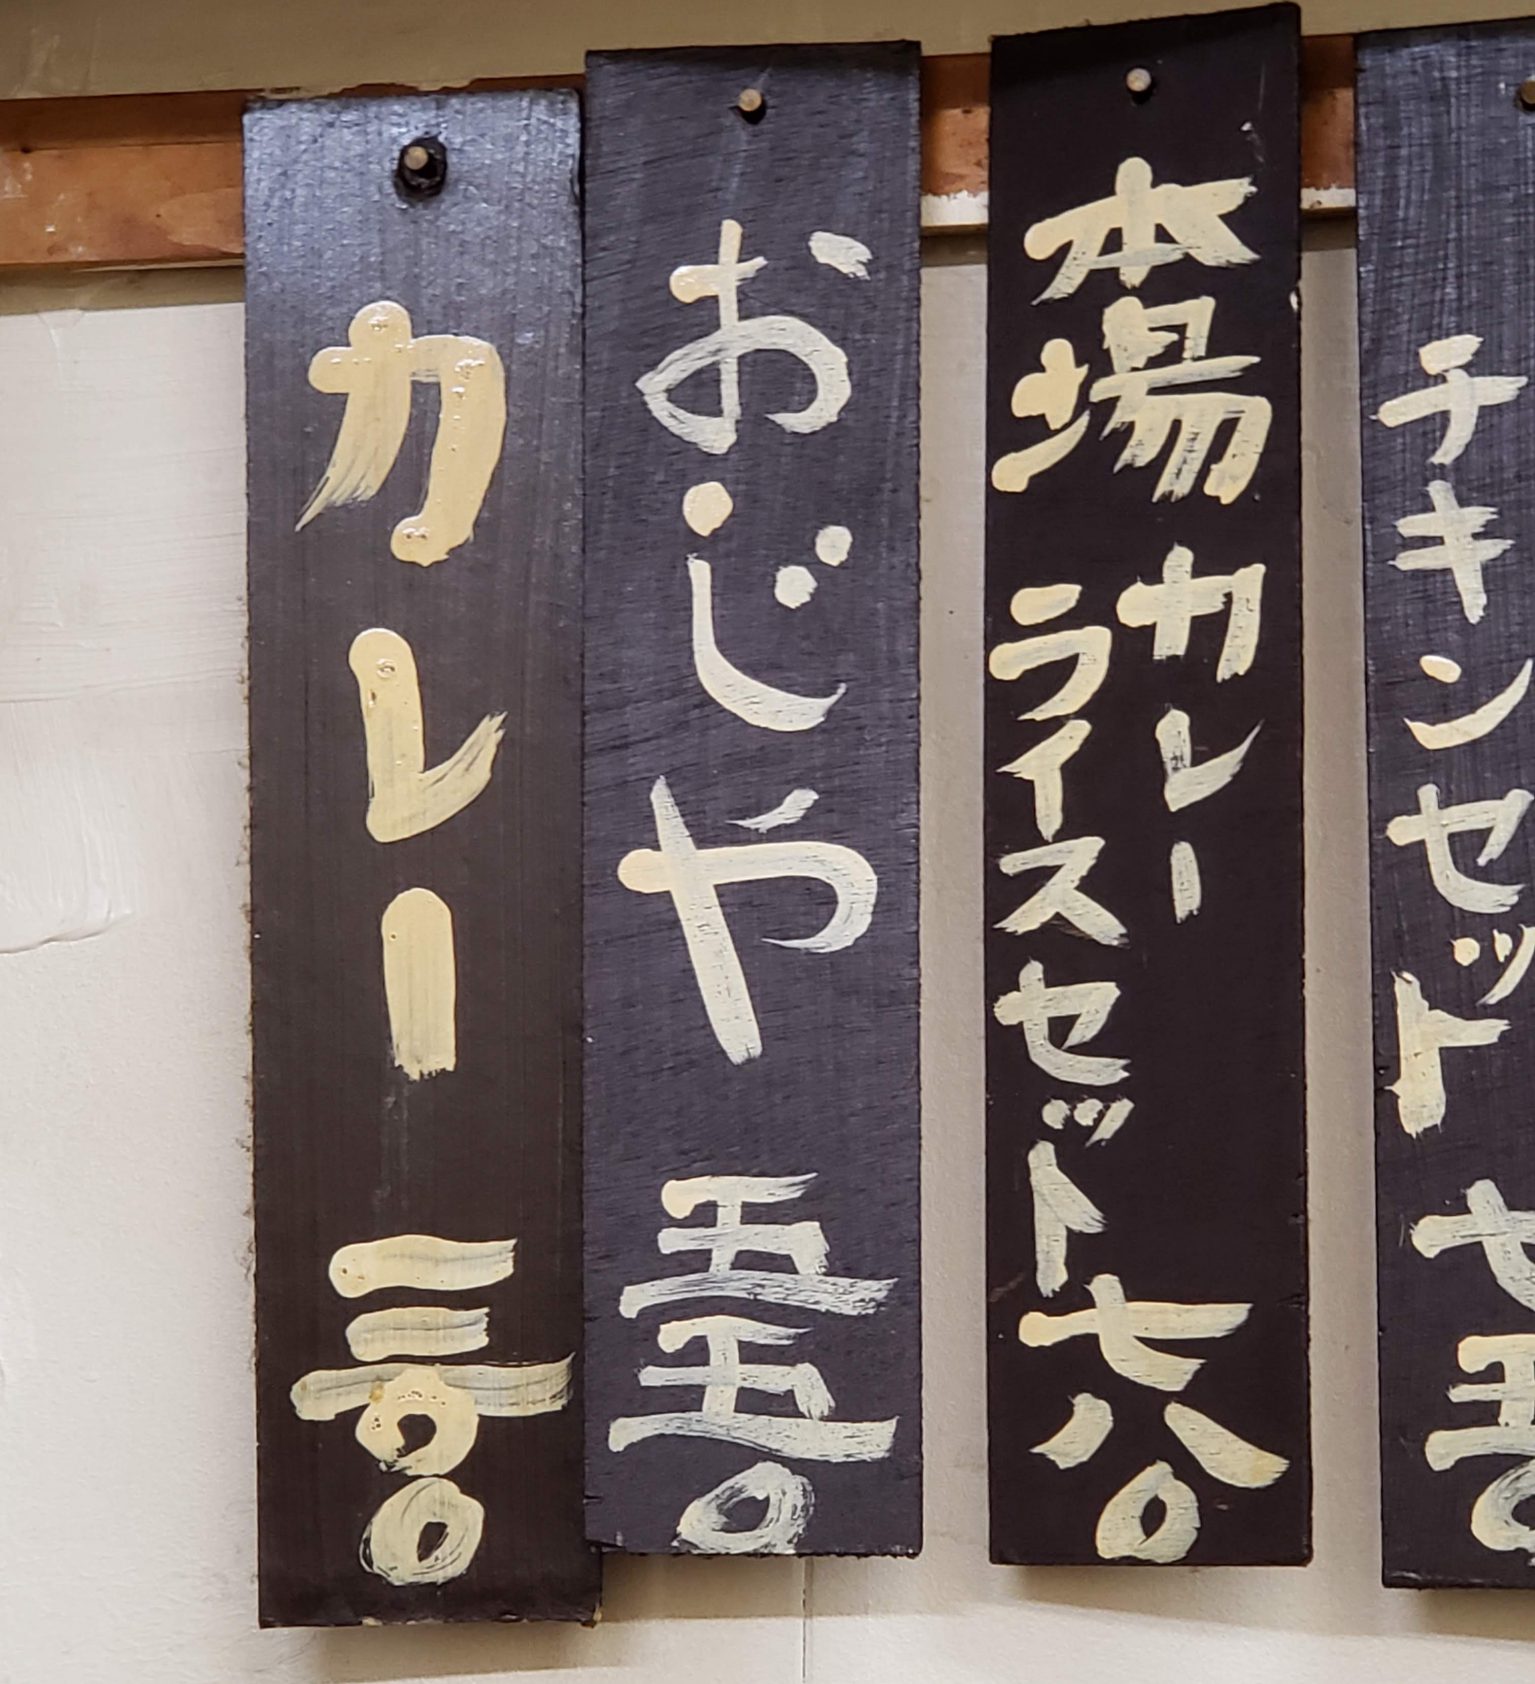 チキンセット 七五〇
本場カレー
ライスセット 七八〇
おじや 五五〇
カレー 三〇〇